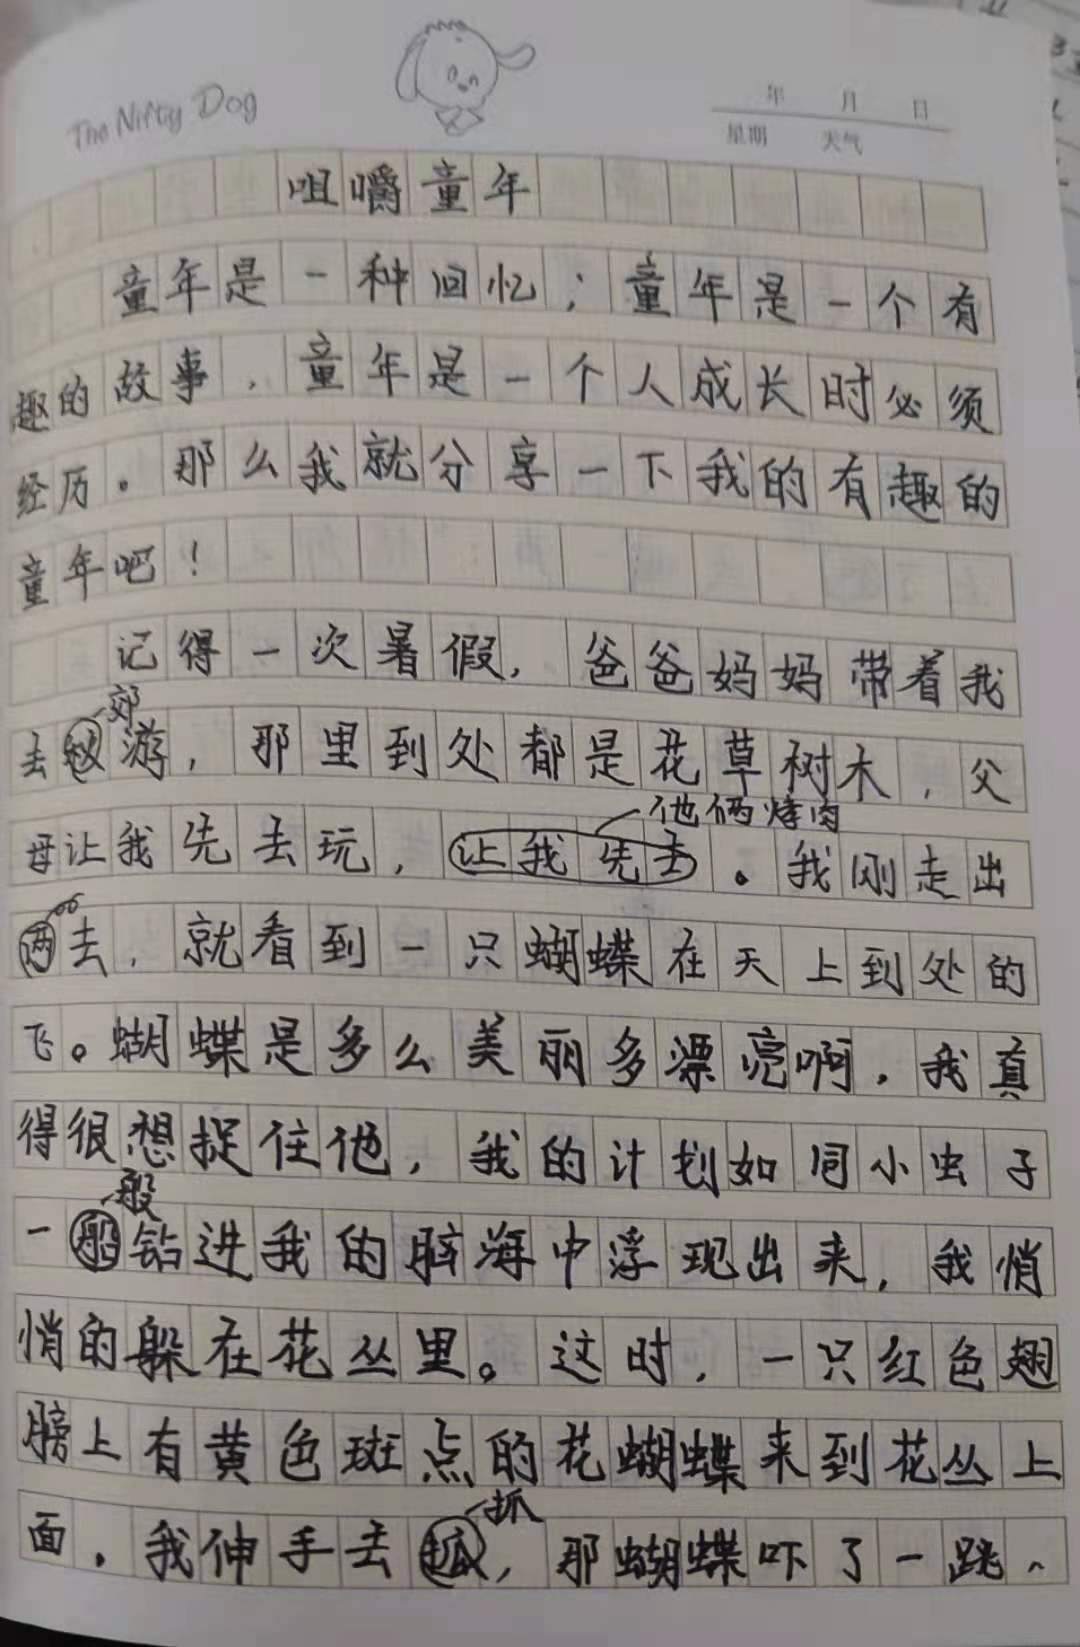 The Nifty Dog
年 月 日
星期 天气
咀嚼童年
童年是一种回忆；童年是一个有
趣的故事，童年是一个人成长时必须
经历。那么我就分享一下我的有趣的
童年吧！
记得一次暑假，爸爸妈妈带着我
郊
去游，那里到处都是花草树木，父
他俩烤肉
母让我先去玩，让我先去。我刚走出
两去，就看到一只蝴蝶在天上到处的
飞。蝴蝶是多么美丽多漂亮啊，我真
得很想捉住他，我的计划如同小虫子
般
一船钻进我的脑海中浮现出来，我悄
悄的躲在花丛里。这时，一只红色翅
膀上有黄色斑点的花蝴蝶来到花丛上
抓
面，我伸手去，那蝴蝶吓了一跳、